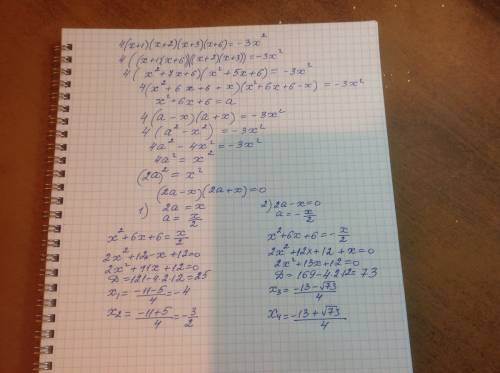 4(x+1)(x+2)(x+3)(x+6)=-3x²
4((x+1)(x+6))((x+2)(x+3))=-3x²
4(x²+7x+6)(x²+5x+6)=-3x²
4(x²+6x+6+x)(x²+6x+6-x)=-3x²
x²+6x+6=a
4(a-x)(a+x)=-3x²
4(a²-x²)=-3x²
4a²-4x²=-3x²
4a²=x²
(2a)²=x²
(2a-x)(2a+x)=0
1) 2a=x
a=x/2
x²+6x+6=x/2
2x²+12x-x+12=0
2x²+11x+12=0
D=121-4·2·12=25
x₁=(-11-5)/4=-4
x₂=(-11+5)/4=-3/2
2) 2a-x=0
a=-x/2
x²+6x+6=-x/2
2x²+12x+12+x=0
2x²+13x+12=0
D=169-4·2·12=73
x₃=(-13-√73)/4
x₄=(-13+√73)/4